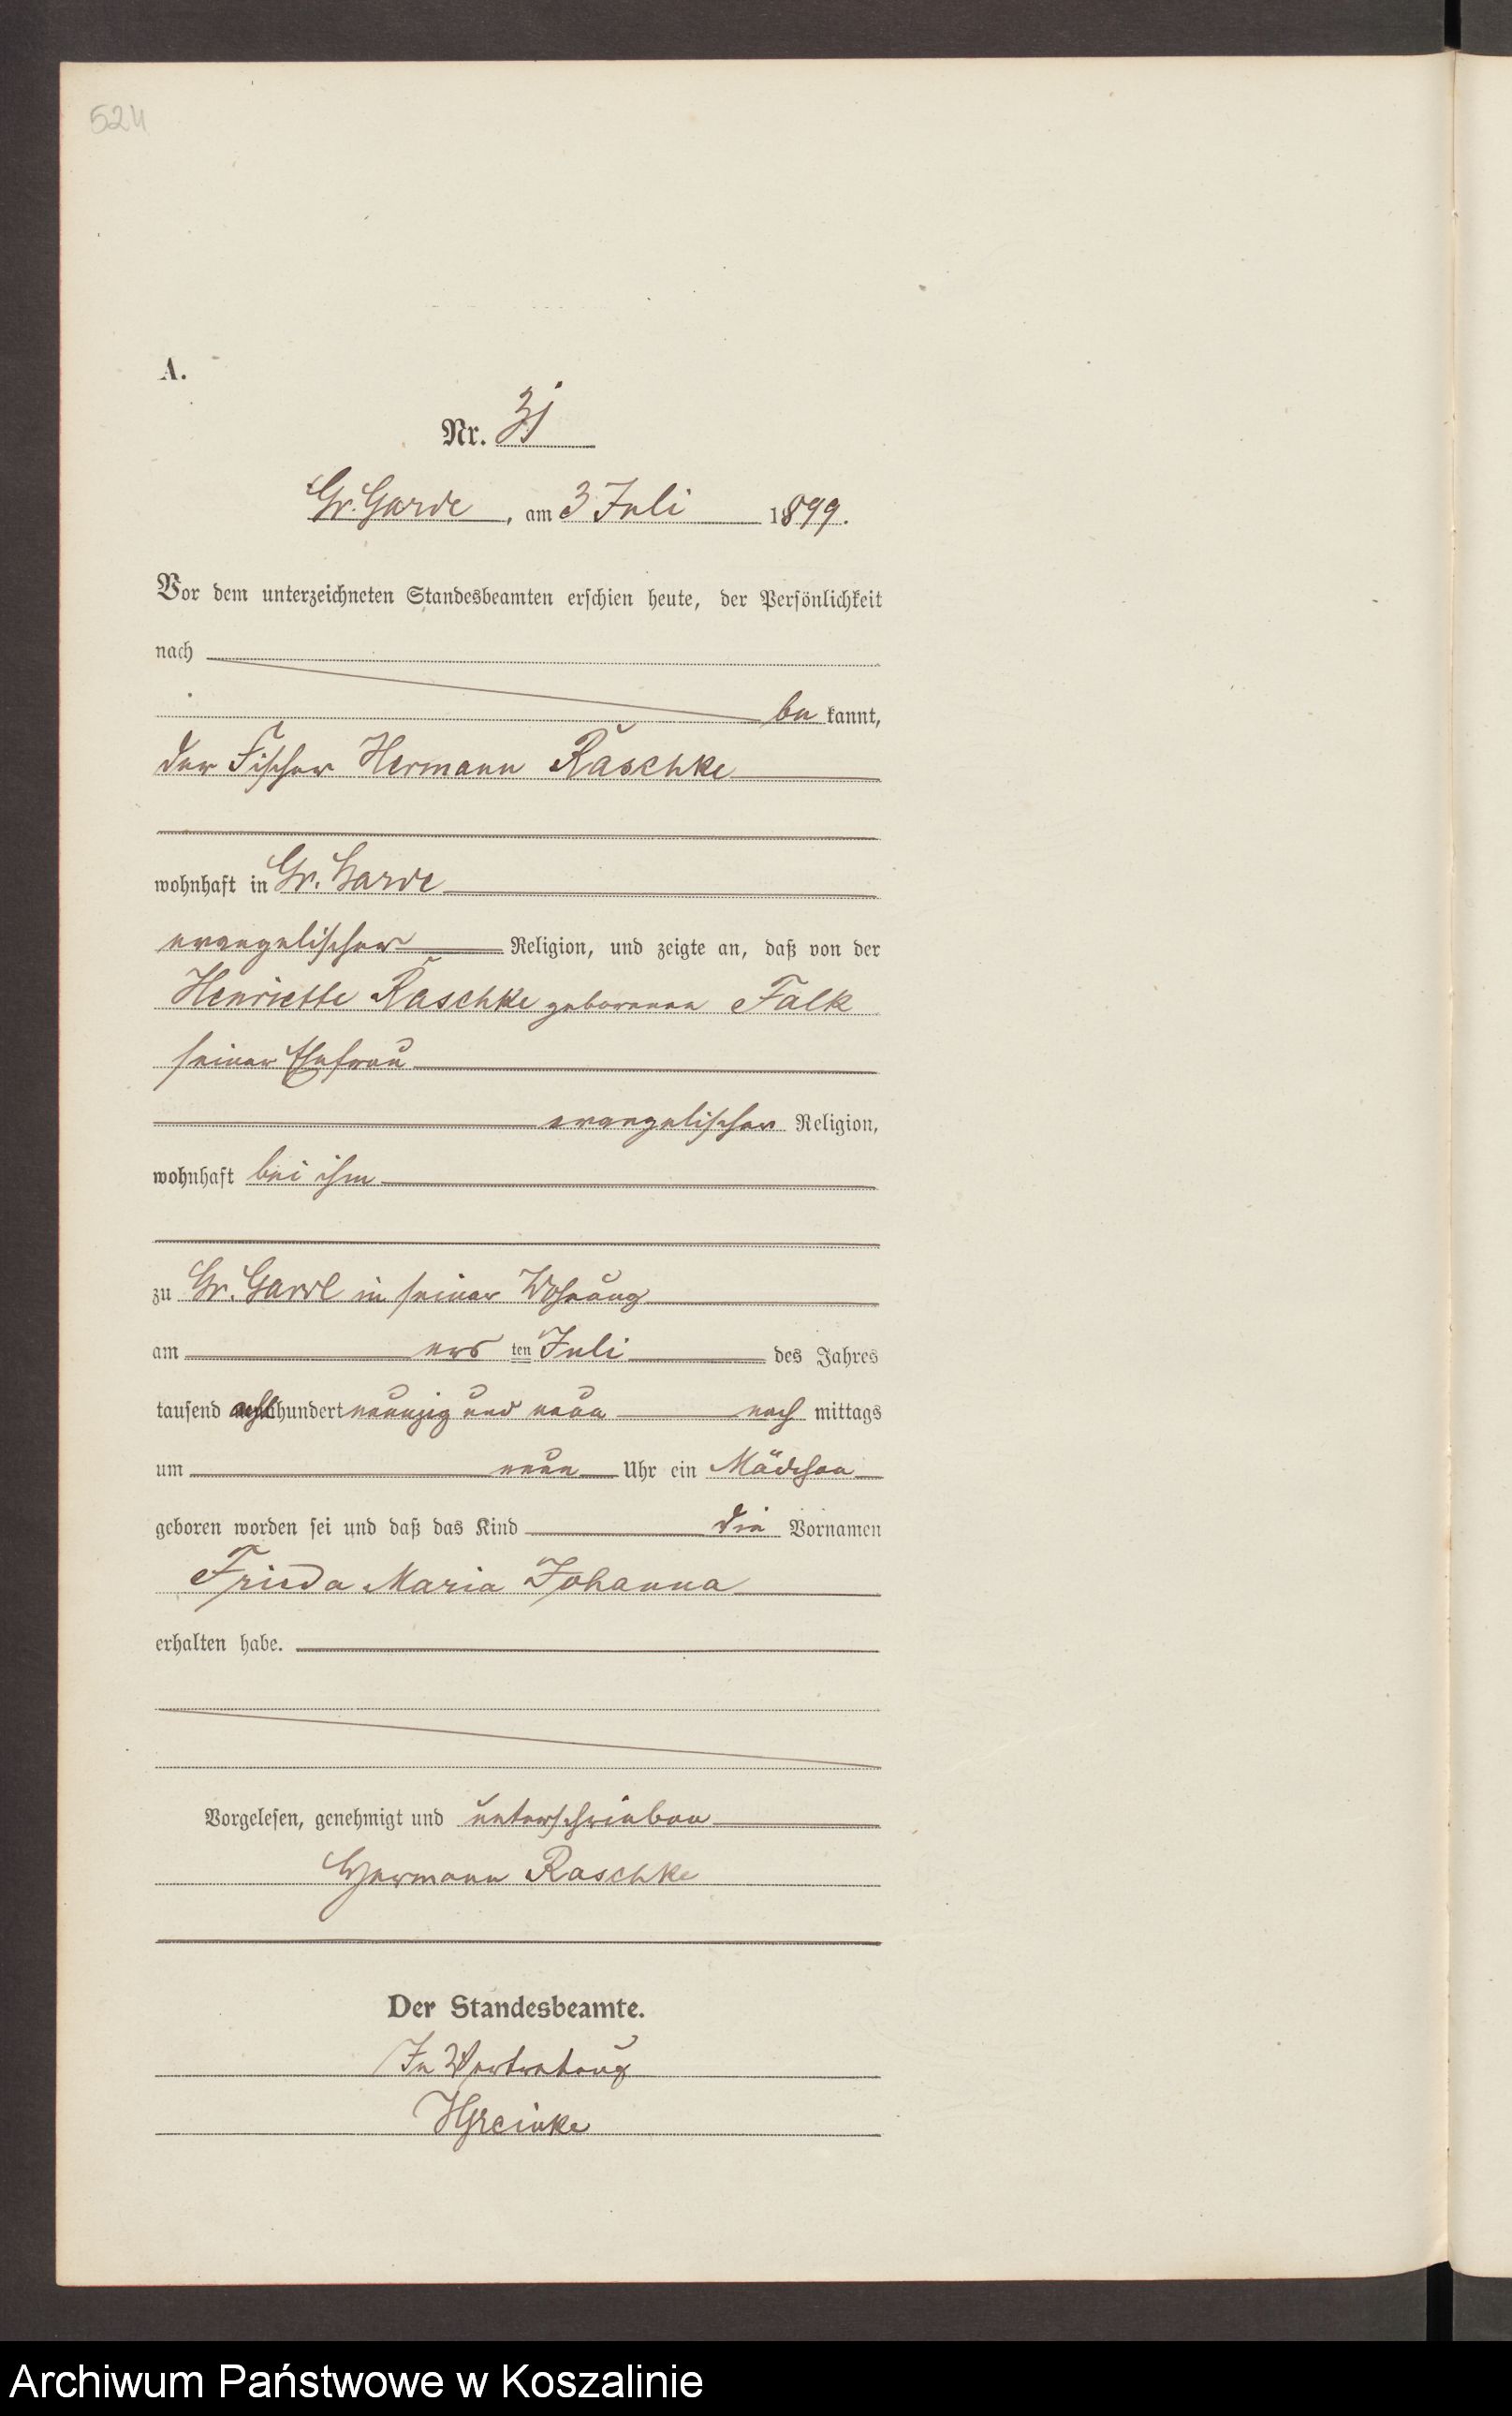 524
A.
Nr. 31
Gr. Garde, am 3 Juli 1899.
Vor dem unterzeichneten Standesbeamten erschien heute, der Persönlichkeit
nach
be kannt,
der Fischer Hermann Raschke
wohnhaft in Gr. Garde
evangelischer Religion, und zeigte an, daß von der
Henriette Raschke geborenen Falk
seiner Ehefrau
evangelischer Religion,
wohnhaft bei ihm
zu Gr. Garde in seiner Wohnung
am ers ten Juli des Jahres
tausend achthundert neunzig und neun nach mittags
um neun Uhr ein Mädchen
geboren worden sei und daß das Kind die Vornamen
Frieda Maria Johanna
erhalten habe.
Vorgelesen, genehmigt und unterschrieben
Hermann Raschke
Der Standesbeamte.
In Vertretung
Archiwum Państwowe w Koszalinie